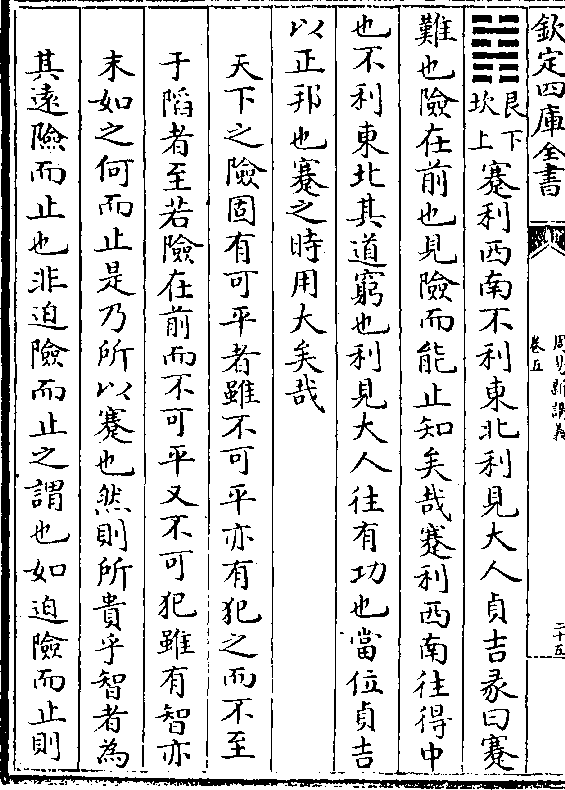 欽定四庫全書
周易新講義
卷五
二十五
艮下
坎上
蹇利西南不利東北利見大人貞吉彖曰蹇
難也險在前也見險而能止知矣哉蹇利西南往得中
也不利東北其道窮也利見大人往有功也當位貞吉
以正邦也蹇之時用大矣哉
天下之險固有可平者雖不可平亦有犯之而不至
于陷者至若險在前而不可平又不可犯雖有智亦
末如之何而止是乃所以蹇也然則所貴乎智者為
其遠險而止也非迫險而止之謂也如迫險而止則